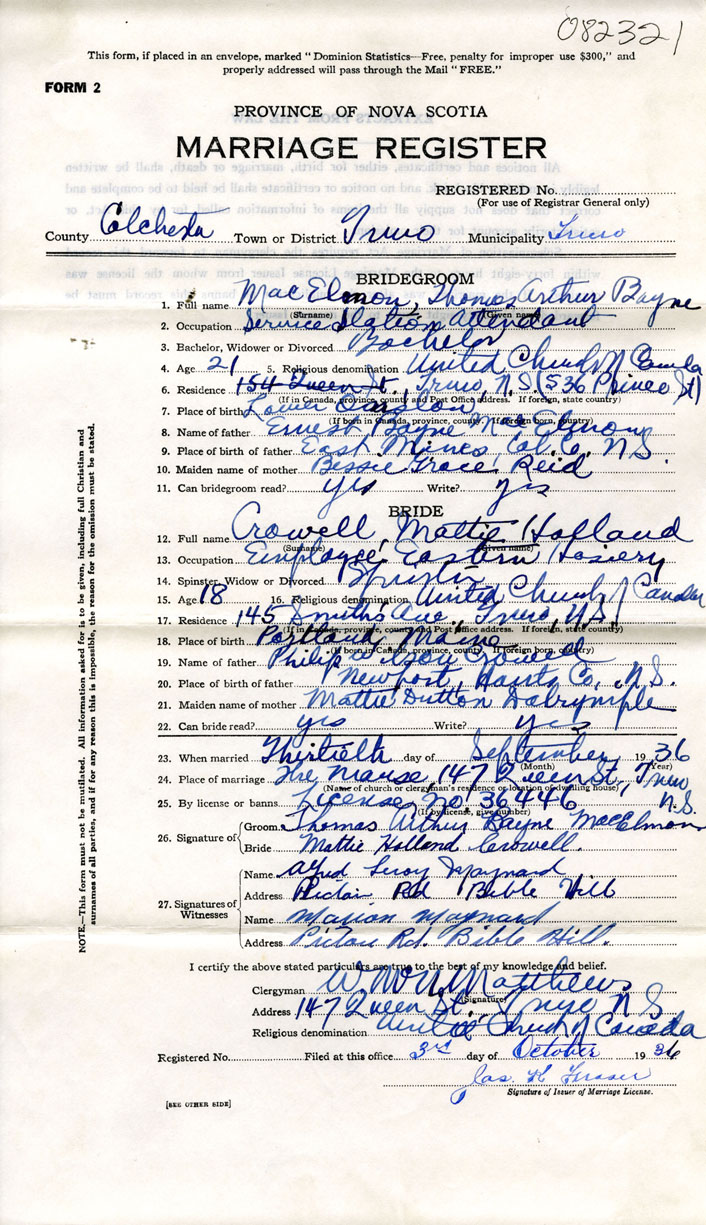 082321
This form, if placed in an envelope, marked "Dominion Statistics—Free, penalty for improper use $300," and
properly addressed will pass through the Mail "FREE."
FORM 2
PROVINCE OF NOVA SCOTIA
MARRIAGE REGISTER
REGISTERED No.
(For use of Registrar General only)
County Colchester Town or District Truro Municipality Truro
BRIDEGROOM
1. Full name MacElmon, Thomas Arthur Bayne
(Surname) (Given name)
2. Occupation Service Station Attendant
3. Bachelor, Widower or Divorced Bachelor
4. Age 21 5. Religious denomination United Church of Canada
6. Residence 154 Queen St. Truro, N.S. (536 Prince St)
(If in Canada, province, county and Post Office address. If foreign, state country)
7. Place of birth Lower Onslow
(If born in Canada, province, county. If foreign born, country)
8. Name of father Ernest Bayne MacElmon
9. Place of birth of father East Mines, Col. Co. N.S.
10. Maiden name of mother Bessie Grace Reid
11. Can bridegroom read? yes Write? yes
BRIDE
12. Full name Crowell, Mattie Holland
(Surname) (Given name)
13. Occupation Employee, Eastern Hosiery
14. Spinster, Widow or Divorced Spinster
15. Age 18 16. Religious denomination United Church of Canada
17. Residence 145 Smith's Ave, Truro, N.S.
(If in Canada, province, county and Post Office address. If foreign, state country)
18. Place of birth Portland, Maine
(If born in Canada, province, county. If foreign born, country)
19. Name of father Philip Crowell
20. Place of birth of father Newport, Hants Co., N.S.
21. Maiden name of mother Mattie Dutton Dalrymple
22. Can bride read? yes Write? yes
23. When married Thirtieth day of September, 1936
(Month) (Year)
24. Place of marriage The Manse, 147 Queen St, Truro
(Name of church or clergyman's residence or location of dwelling house)
N.S.
25. By license or banns License, No 36446
(If by license, give number)
26. Signature of Groom Thomas Arthur Bayne MacElmon
Bride Mattie Holland Crowell.
27. Signatures of Witnesses
Name Alfred Leroy Maynard
Address Pictou Rd Bible Hill
Name Marion Maynard
Address Pictou Rd. Bible Hill.
I certify the above stated particulars are true to the best of my knowledge and belief.
Clergyman Matthews
(Signature)
Address 147 Queen St. Truro N S
Religious denomination United Church of Canada
Registered No. Filed at this office 3rd day of October 1936
Jas. H Fraser
Signature of Issuer of Marriage License.
[SEE OTHER SIDE]
NOTE.—This form must not be mutilated. All information asked for is to be given, including full Christian and
surnames of all parties, and if for any reason this is impossible, the reason for the omission must be stated.